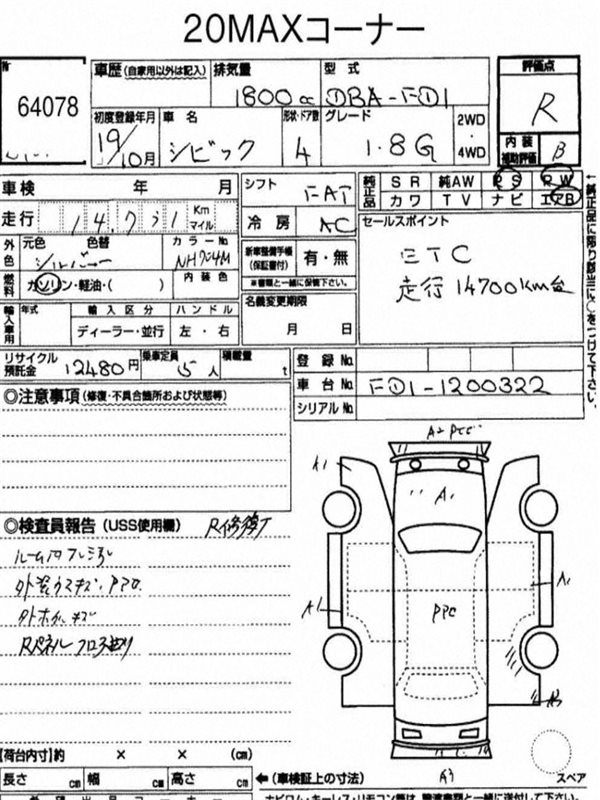 20MAXコーナー
№
64078
車歴 (自家用以外は記入) 排気量 型式
1800 cc DBA-FD1
初度登録年月 車名 形状・ドア数 グレード 2WD・4WD
19年10月 シビック 4 1.8G
評価点
R
内装補助評価 B
車検 年 月 シフト FAT
走行 14,731 Km マイル 冷房 AC
純正品 SR 純AW PS PW
カワ TV ナビ エアB
外色 元色 色替 カラーNo 新車整備手帳(保証書付) 有・無
シルバー NH704M ※書類と一緒に保管下さい。
燃料 ガソリン・軽油・( ) 内装色
セールスポイント
ETC
走行14700km台
↑純正品に限り該当に○をつけて下さい。
名義変更期限
月 日
輸入車用 年式 輸入区分 ハンドル
ディーラー・並行 左・右
リサイクル預託金 12480円 乗車定員 5人 積載量 t
登録No
車台No FD1-1200322
シリアルNo
◎注意事項(修復・不具合箇所および状態等)
◎検査員報告(USS使用欄) R修複了
外装ウスキズ、PPC
A2 PPC
A1
A1
A1
A1
PPC
A3
【荷台内寸】約 × × (cm)
長さ cm 幅 cm 高さ cm
←(車検証上の寸法)
スペア